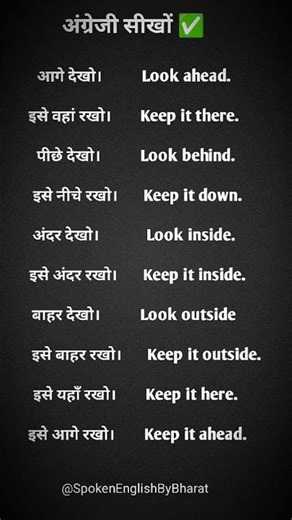 अंग्रेजी सीखों ✅
आगे देखो। Look ahead.
इसे वहां रखो। Keep it there.
पीछे देखो। Look behind.
इसे नीचे रखो। Keep it down.
अंदर देखो। Look inside.
इसे अंदर रखो। Keep it inside.
बाहर देखो। Look outside
इसे बाहर रखो। Keep it outside.
इसे यहाँ रखो। Keep it here.
इसे आगे रखो। Keep it ahead.
@SpokenEnglishByBharat